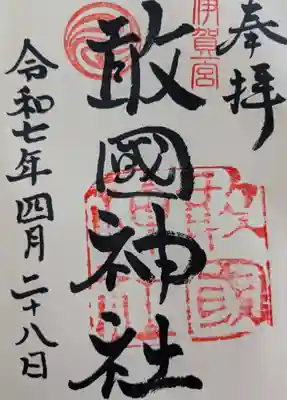 奉拝
伊賀一宮
敢國神社
令和七年四月二十八日
敢國神社